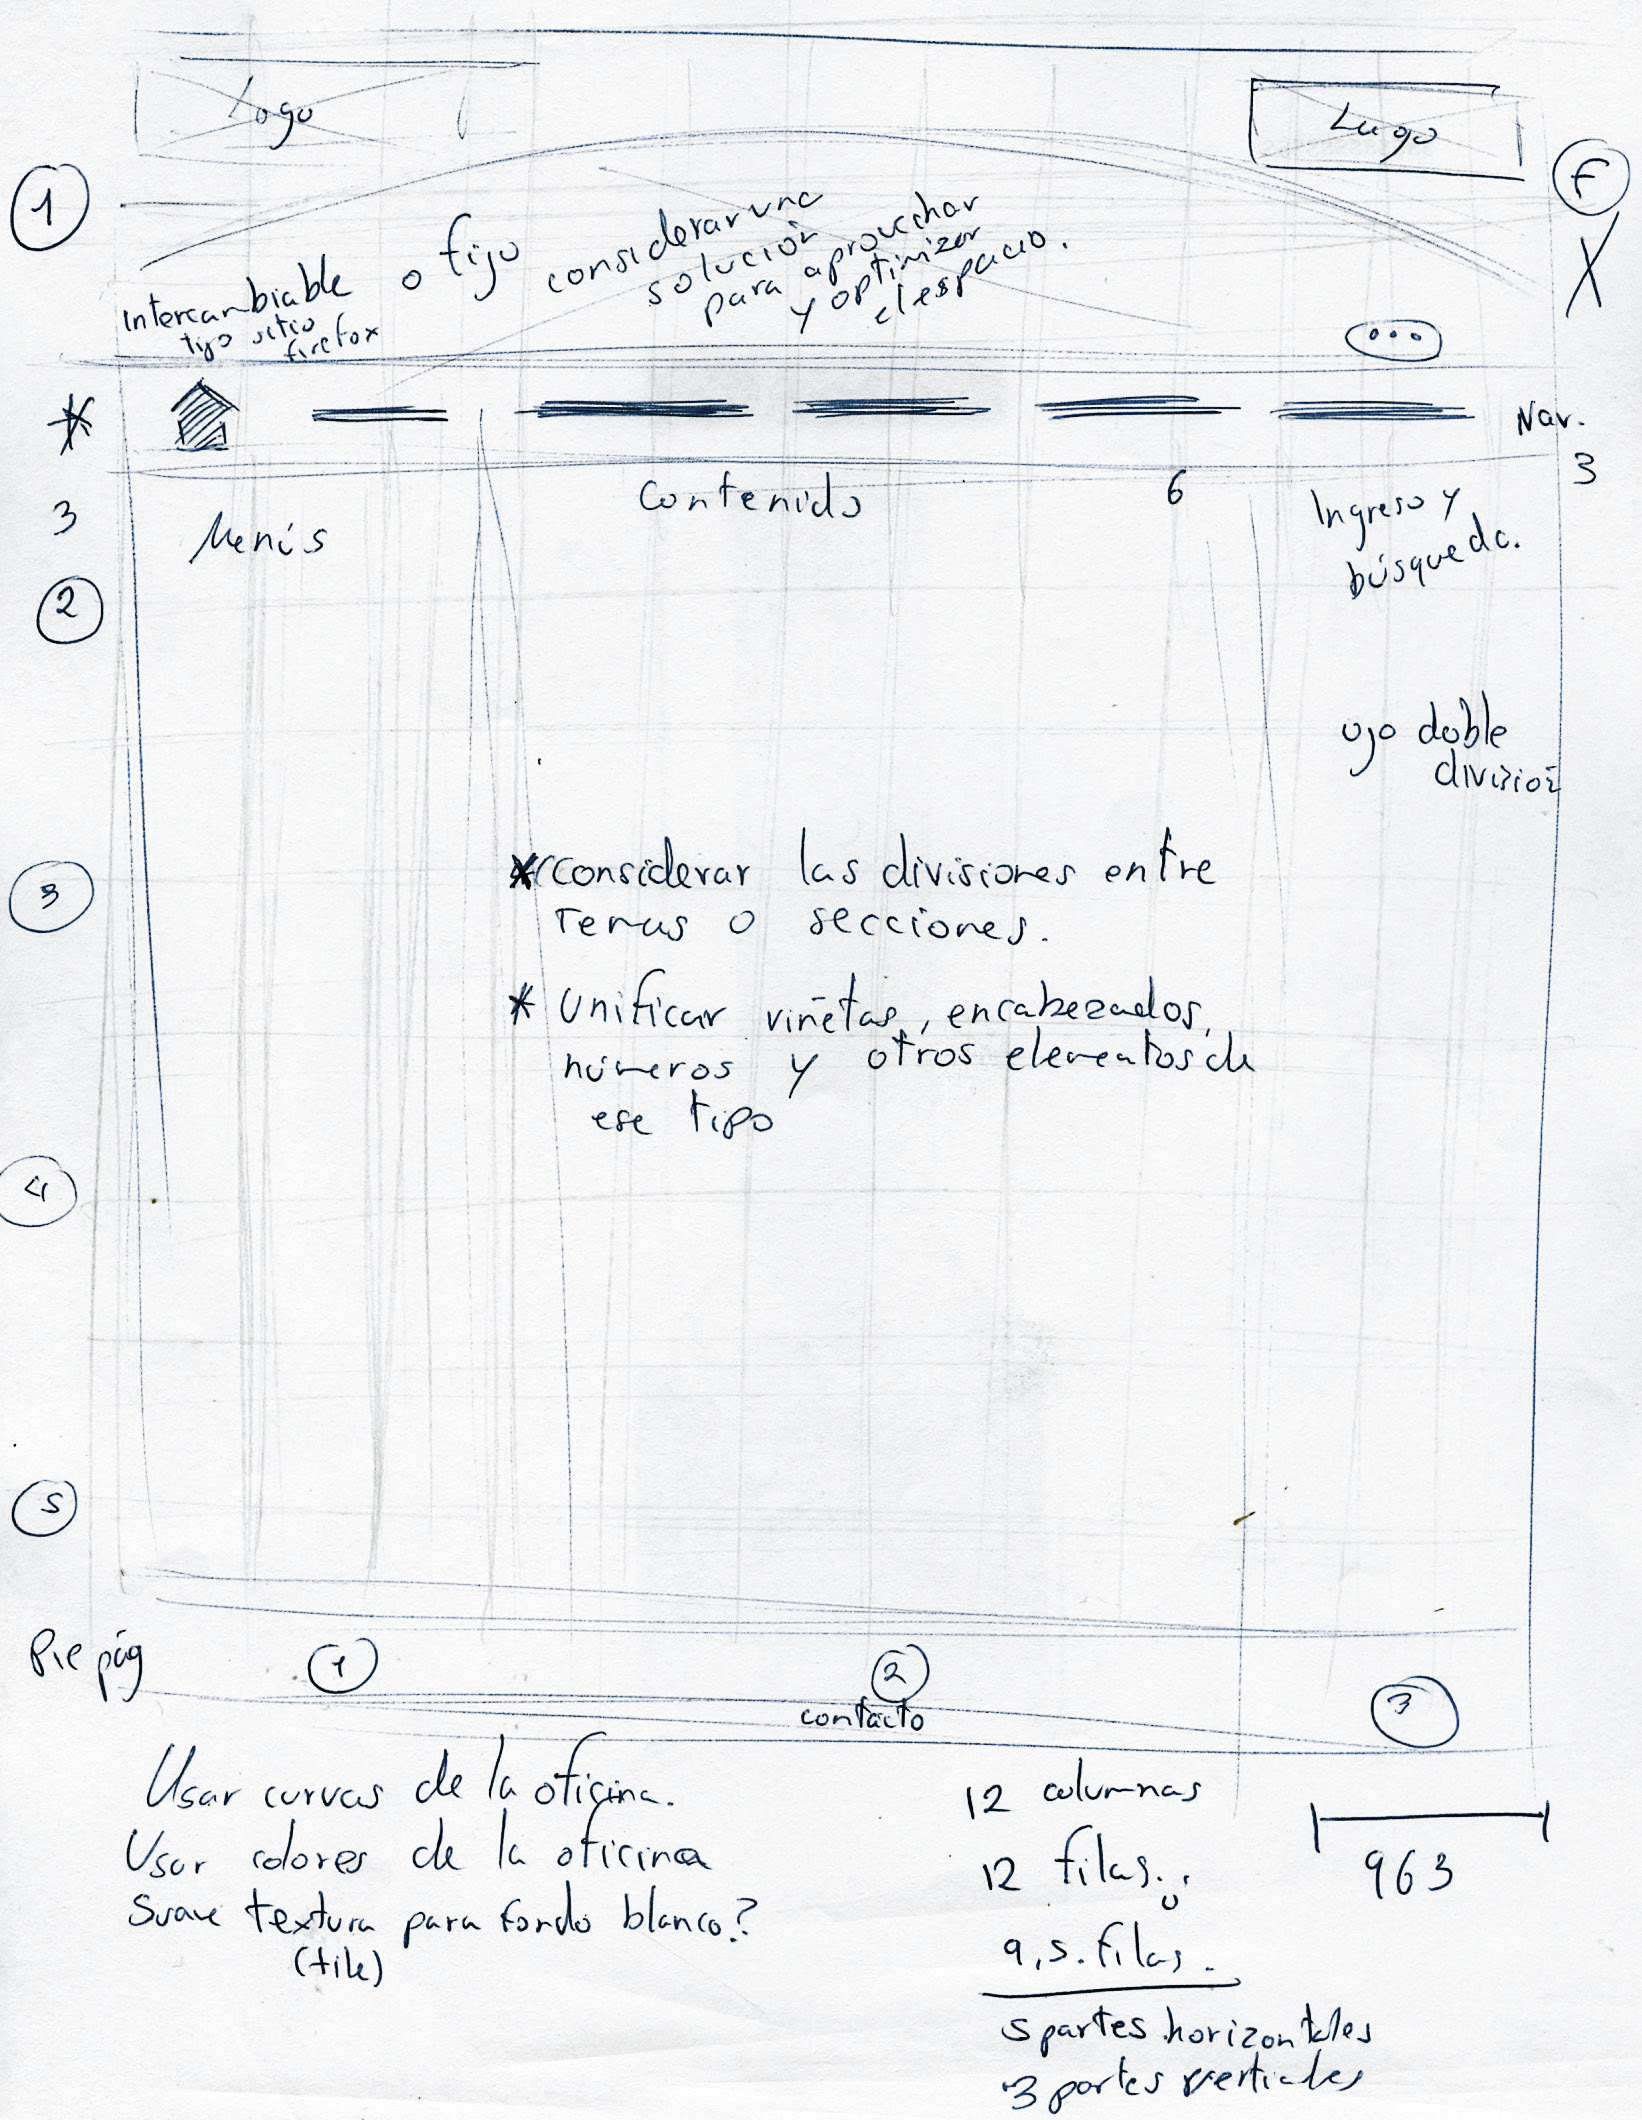 Logo
Logo
1
F
X
Intercambiable
tipo sitio
firefox
o fijo
considerar una
solución
para aprovechar
y optimizar
el espacio.
...
*
Nav.
3
3
Menús
Contenido
6
Ingreso y
búsqueda.
2
ojo doble
división
3
* Considerar las divisiones entre
Temas o secciones.
* Unificar viñetas, encabezados,
números y otros elementos de
ese tipo
4
5
Pie pág
1
2
contacto
3
Usar curvas de la oficina.
Usar colores de la oficina
Suave textura para fondo blanco?
(tile)
12 columnas
12 filas.
9,5. filas.
5 partes horizontales
3 partes verticales
963